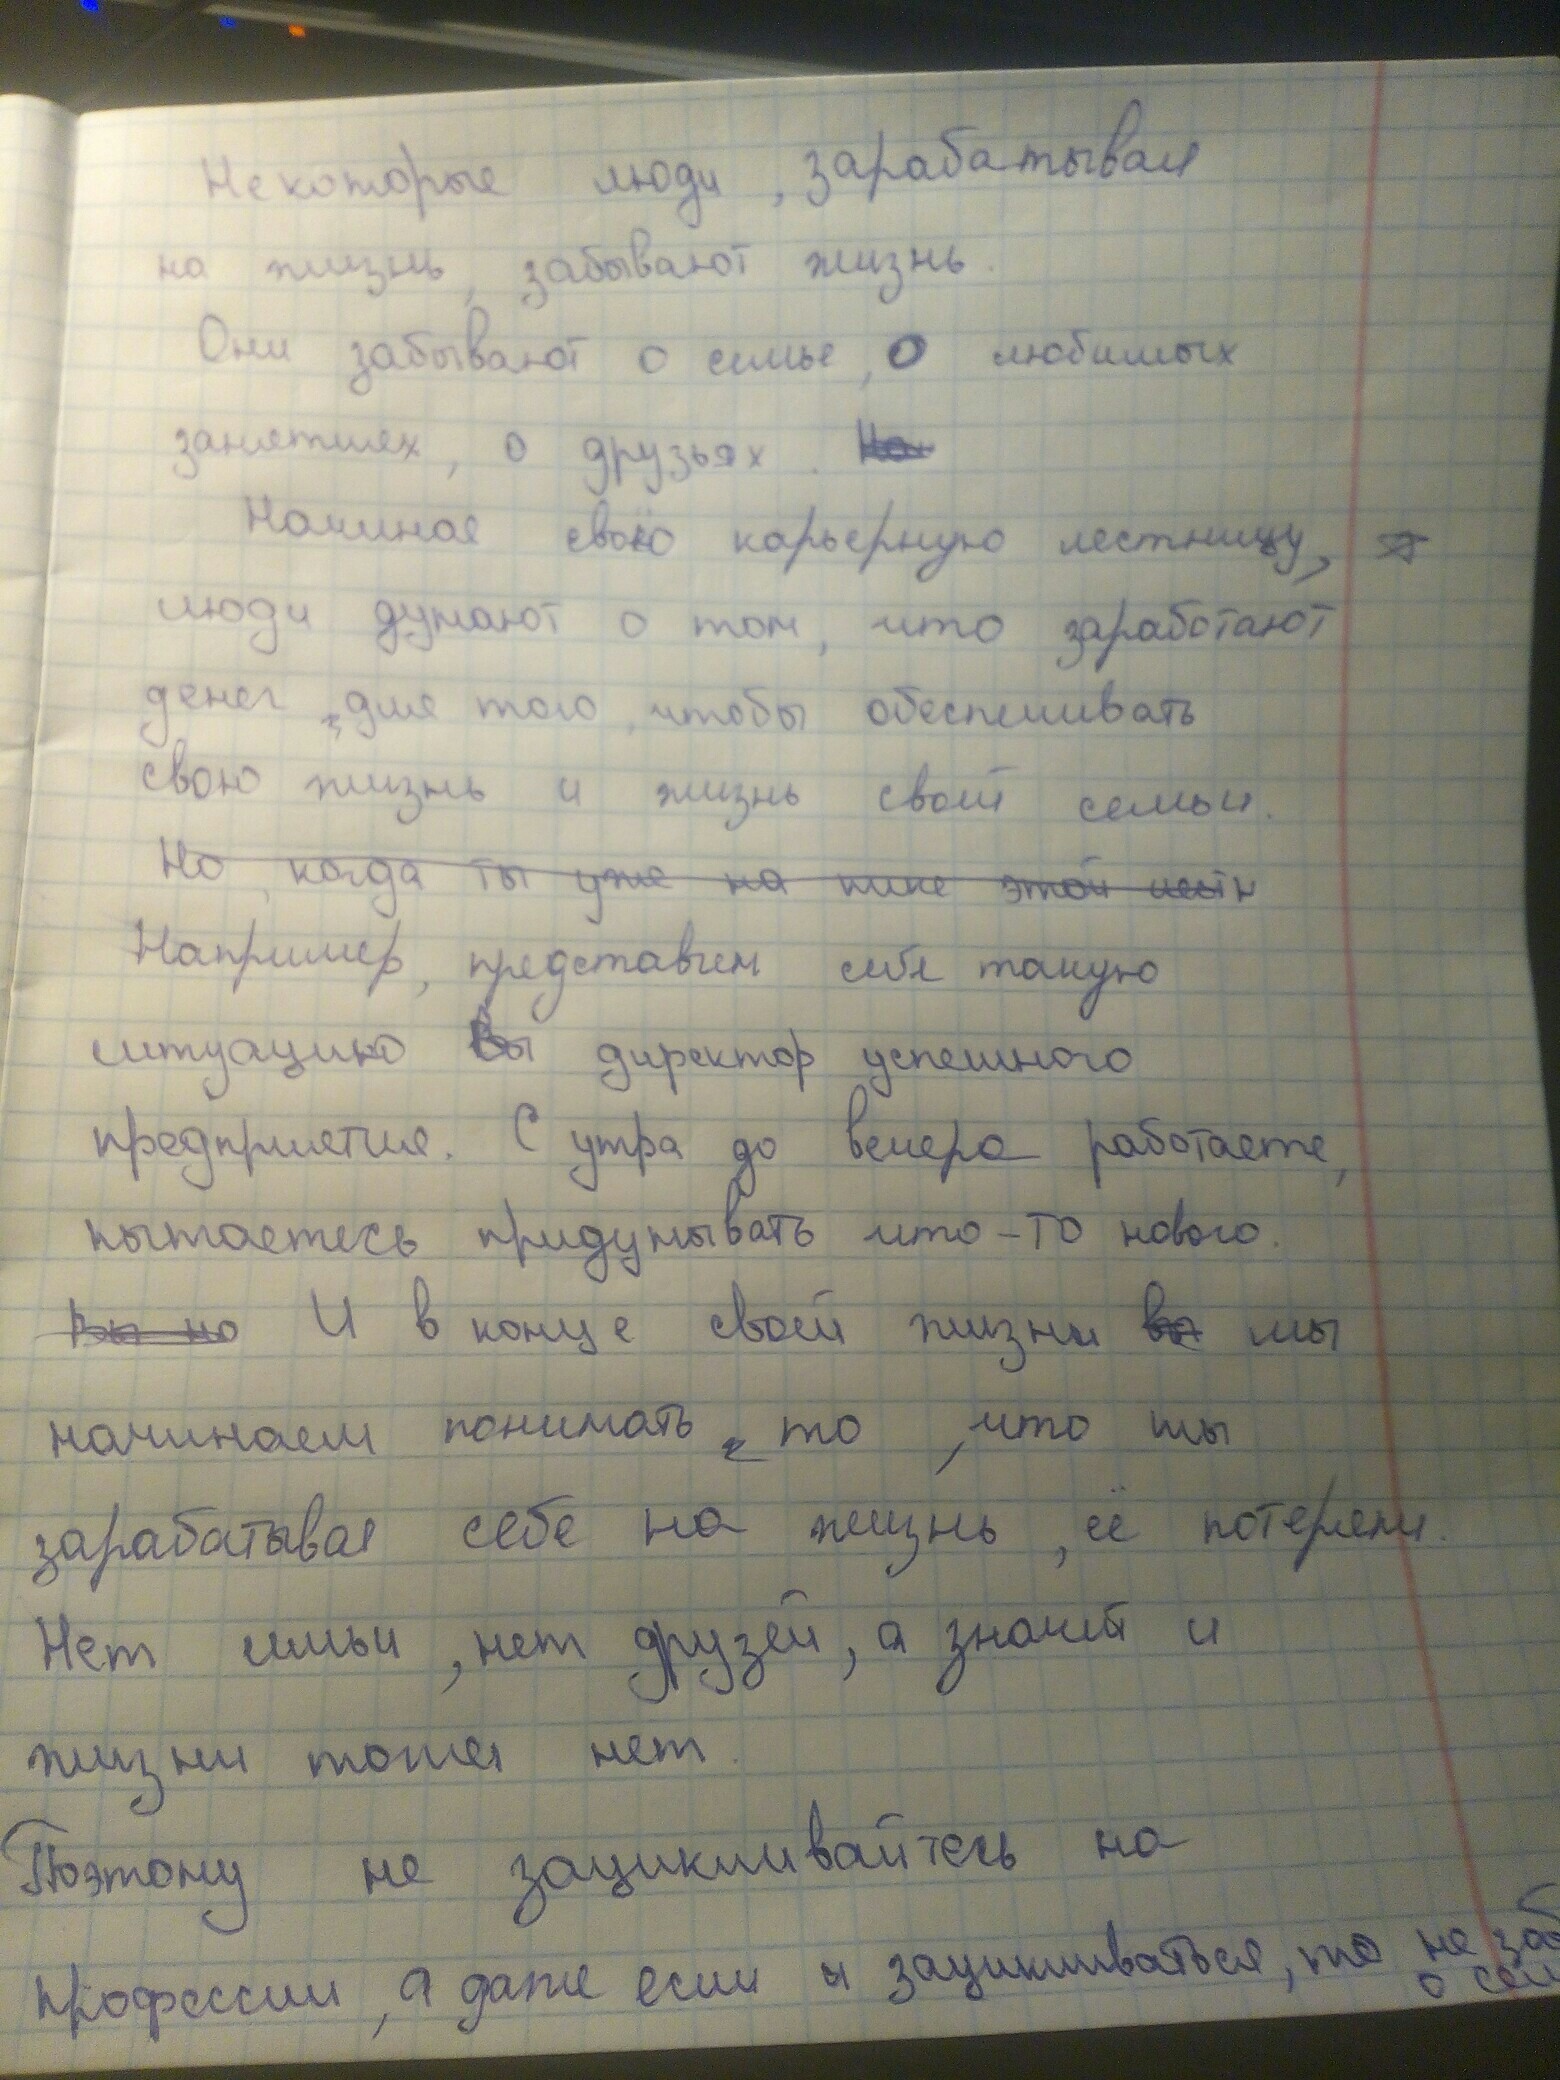 Некоторые люди, зарабатывая
на жизнь, забывают жизнь.
Они забывают о семье, о любимых
занятиях, о друзьях.
Начиная свою карьерную лестницу,
люди думают о том, что заработают
денег, для того, чтобы обеспечивать
свою жизнь и жизнь своей семьи.
Но, когда ты уже на пике этой лестн
Например, представим себе такую
ситуацию Вы директор успешного
предприятия. С утра до вечера работаете,
пытаетесь придумывать что-то нового.
И в конце своей жизни мы
начинаем понимать то, что мы
зарабатывая себе на жизнь, её потеряли.
Нет семьи, нет друзей, а значит и
жизни тоже нет.
Поэтому не зацикливайтесь на
профессии, а даже если и зацикливаться, то не
о